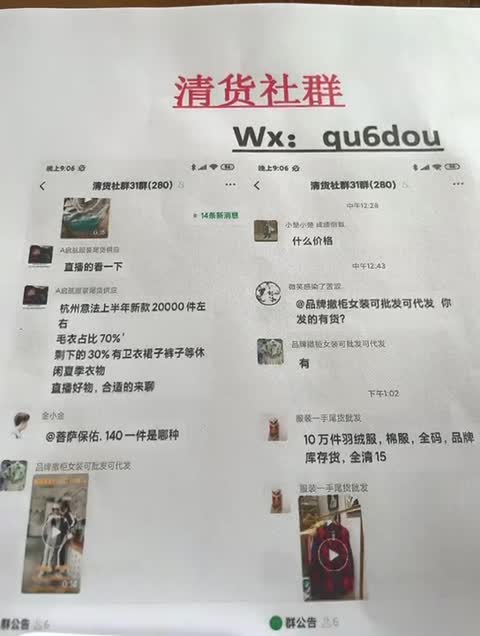 清货社群
Wx：qu6dou
晚上9:06
清货社群31群(280)
14条新消息
A启航服装尾货供应
直播的看一下
A启航服装尾货供应
杭州意法上半年新款20000件左
右
毛衣占比70%'
剩下的30%有卫衣裙子裤子等休
闲夏季衣物
直播好物，合适的来聊
金小金
@菩萨保佑. 140一件是哪种
品牌撤柜女装可批发可代发
0:14
群公告 6
晚上9:06
清货社群31群(280)
中午12:28
什么价格
中午12:43
@品牌撤柜女装可批发可代发 你
发的有货?
品牌撤柜女装可批发可代发
有
下午1:02
服装一手尾货批发
10万件羽绒服，棉服，全码，品牌
库存货，全清15
服装一手尾货批发
群公告 6